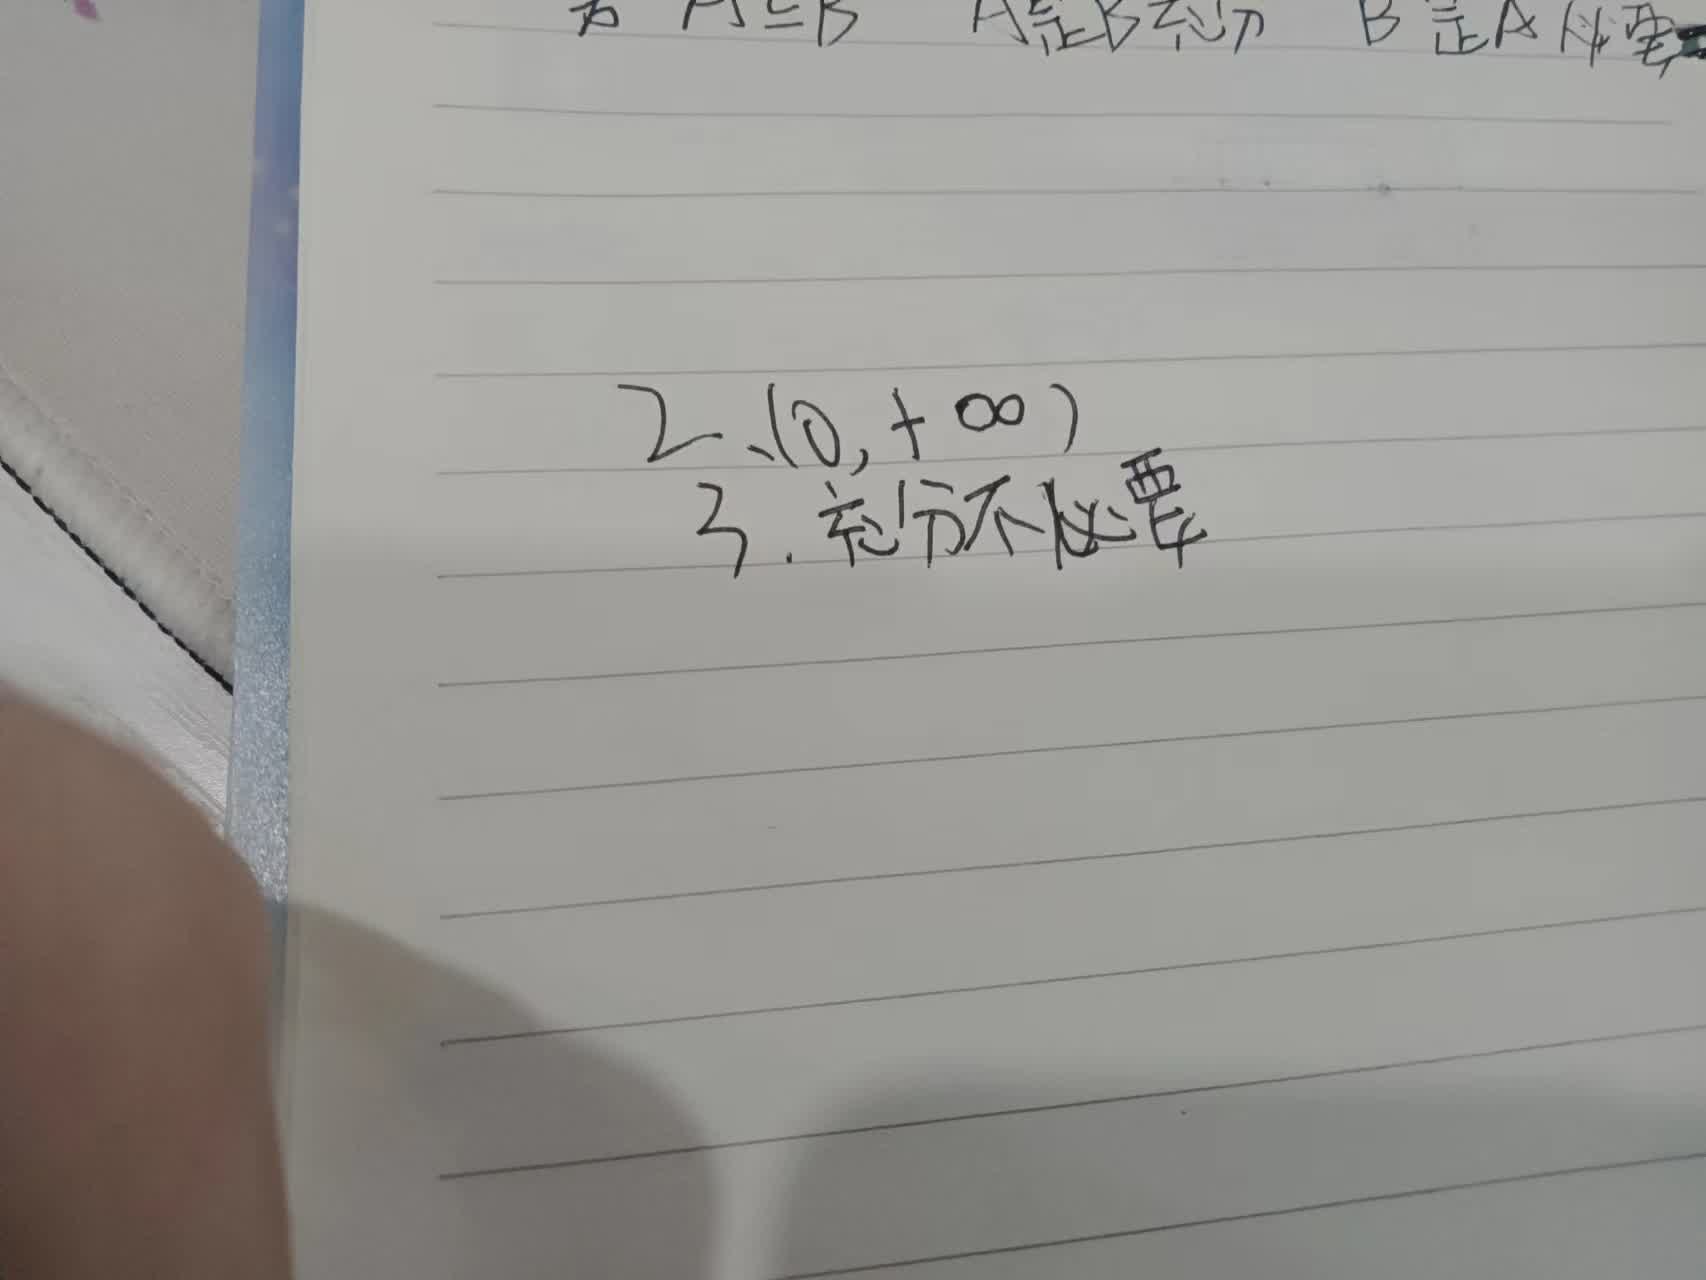 为 A⊆B A是B充分 B是A必要
2、(0,+∞)
3.充分不必要